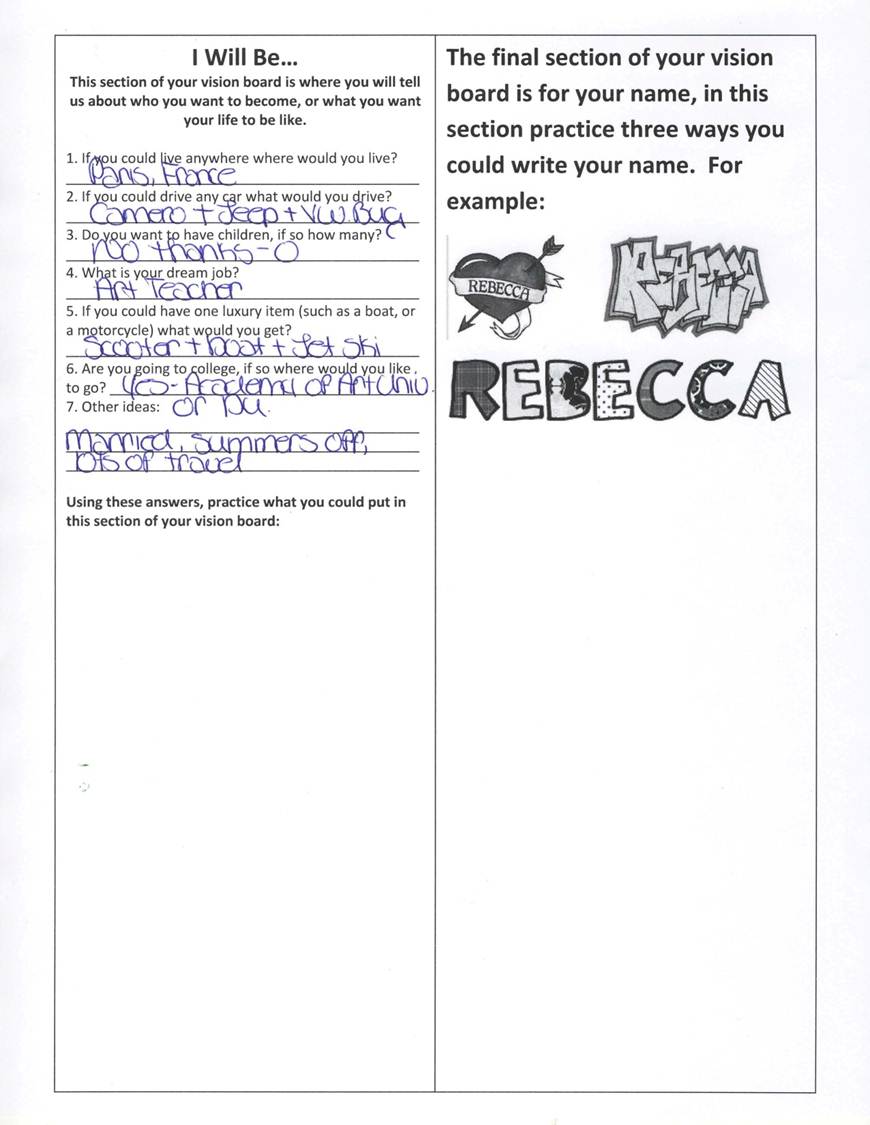 I Will Be...
This section of your vision board is where you will tell
us about who you want to become, or what you want
your life to be like.
1. If you could live anywhere where would you live?
Paris, France
2. If you could drive any car what would you drive?
Camero + Jeep + VW Bug
3. Do you want to have children, if so how many?
No thanks - 0
4. What is your dream job?
Art Teacher
5. If you could have one luxury item (such as a boat, or
a motorcycle) what would you get?
Scooter + boat + Jet Ski
6. Are you going to college, if so where would you like
to go? Yes - Academy of Art Univ.
7. Other ideas: or
Married, summers off,
lots of travel
Using these answers, practice what you could put in
this section of your vision board:
The final section of your vision
board is for your name, in this
section practice three ways you
could write your name. For
example:
REBECCA
REBECCA
REBECCA